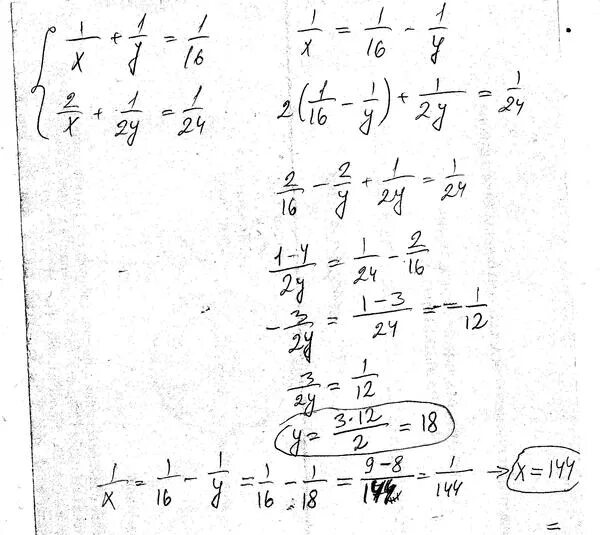 { 1/x + 1/y = 1/16
2/x + 1/2y = 1/24
1/x = 1/16 - 1/y
2(1/16 - 1/y) + 1/2y = 1/24
2/16 - 2/y + 1/2y = 1/24
1-4/2y = 1/24 - 2/16
-3/2y = 1-3/24 = -1/12
3/2y = 1/12
y = 3·12/2 = 18
1/x = 1/16 - 1/y = 1/16 - 1/18 = 9-8/144 = 1/144 → x = 144
=